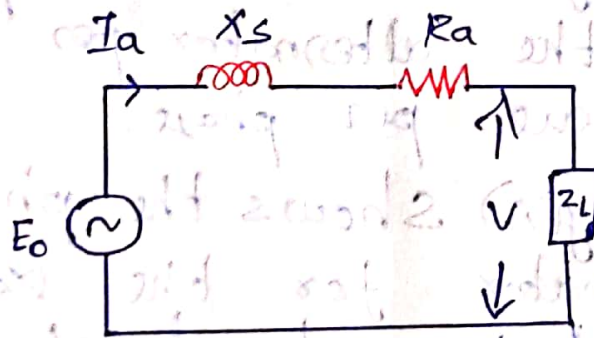 Ia Xs Ra
E0 V ZL